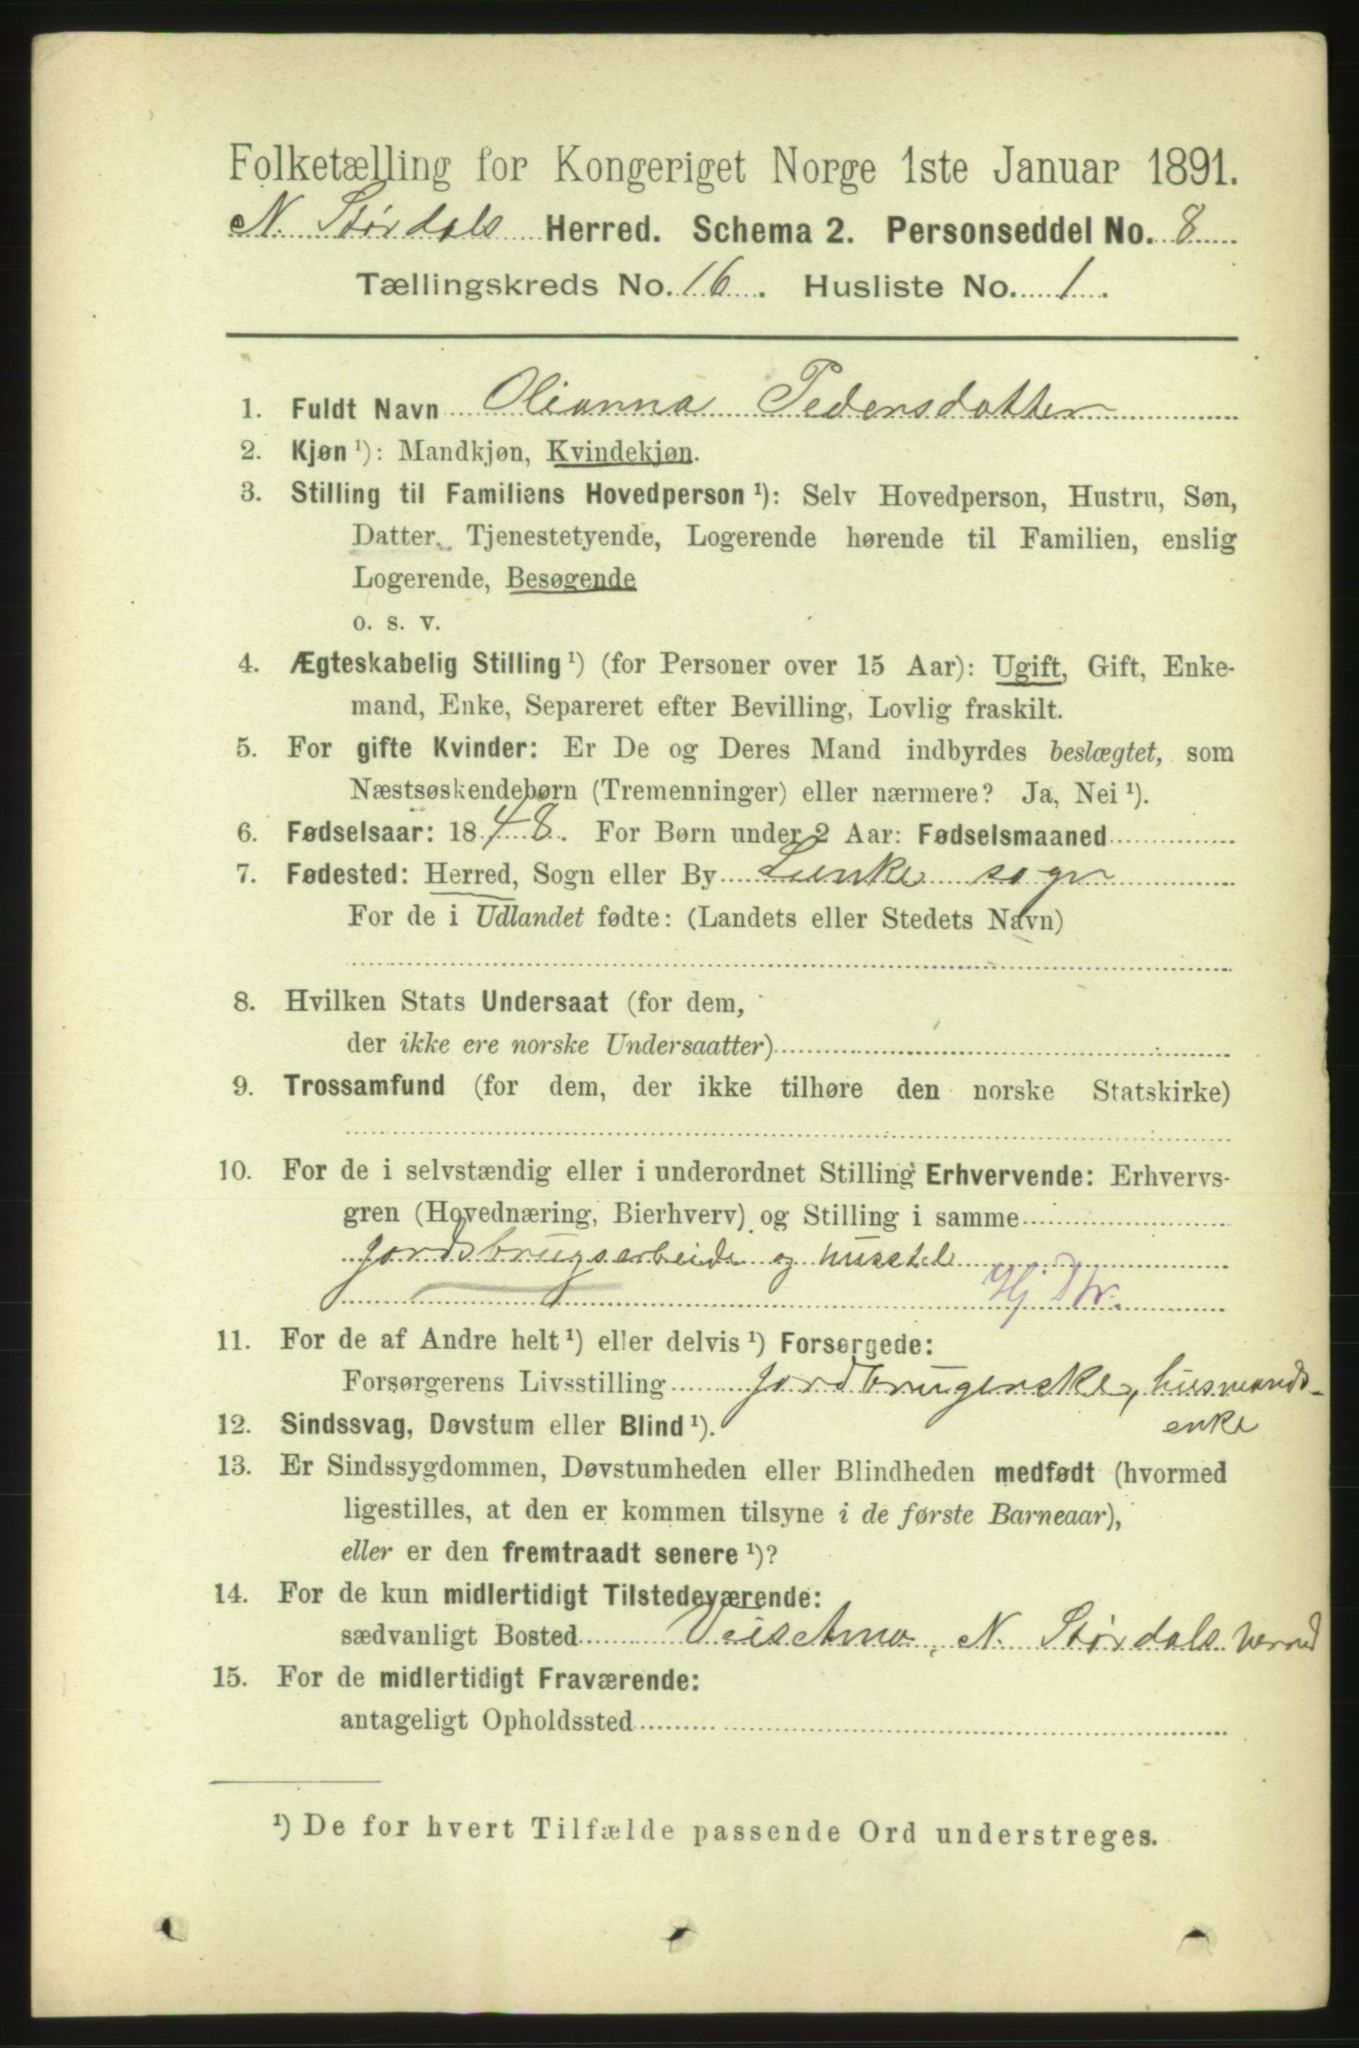 Folketælling for Kongeriget Norge 1ste Januar 1891.
N. Størdals Herred. Schema 2. Personseddel No. 8
Tællingskreds No. 16. Husliste No. 1.
1. Fuldt Navn Olianna Pedersdatter
2. Kjøn ¹): Mandkjøn, Kvindekjøn.
3. Stilling til Familiens Hovedperson ¹): Selv Hovedperson, Hustru, Søn,
Datter, Tjenestetyende, Logerende hørende til Familien, enslig
Logerende, Besøgende
o. s. v.
4. Ægteskabelig Stilling ¹) (for Personer over 15 Aar): Ugift, Gift, Enke-
mand, Enke, Separeret efter Bevilling, Lovlig fraskilt.
5. For gifte Kvinder: Er De og Deres Mand indbyrdes beslægtet, som
Næstsøskendebørn (Tremenninger) eller nærmere? Ja, Nei ¹).
6. Fødselsaar: 1848. For Børn under 2 Aar: Fødselsmaaned
7. Fødested: Herred, Sogn eller By Lænke sogn
For de i Udlandet fødte: (Landets eller Stedets Navn)
8. Hvilken Stats Undersaat (for dem,
der ikke ere norske Undersaatter)
9. Trossamfund (for dem, der ikke tilhøre den norske Statskirke)
10. For de i selvstændig eller i underordnet Stilling Erhvervende: Erhvervs-
gren (Hovednæring, Bierhverv) og Stilling i samme
Jordbrugsarbeide og husstel
Hj Dtr.
11. For de af Andre helt ¹) eller delvis ¹) Forsørgede:
Forsørgerens Livsstilling Jordbrugerske, husmands-
enke
12. Sindssvag, Døvstum eller Blind ¹).
13. Er Sindssygdommen, Døvstumheden eller Blindheden medfødt (hvormed
ligestilles, at den er kommen tilsyne i de første Barneaar),
eller er den fremtraadt senere ¹)?
14. For de kun midlertidigt Tilstedeværende:
sædvanligt Bosted N. Størdals herred
15. For de midlertidigt Fraværende:
antageligt Opholdssted
¹) De for hvert Tilfælde passende Ord understreges.